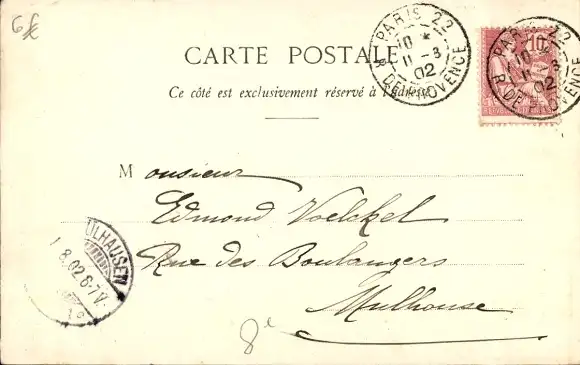 6f
CARTE POSTALE
Ce côté est exclusivement réservé à l'adresse
PARIS 22
10 *
11 - 3
02
R. DE PROVENCE
PARIS 22
10
11 - 3
02
R. DE PROVENCE
10
Monsieur
Edmond Voelckel
Rue des Boulangers
Mulhouse
ÜLHAUSEN
8.02.6-7V.
8e